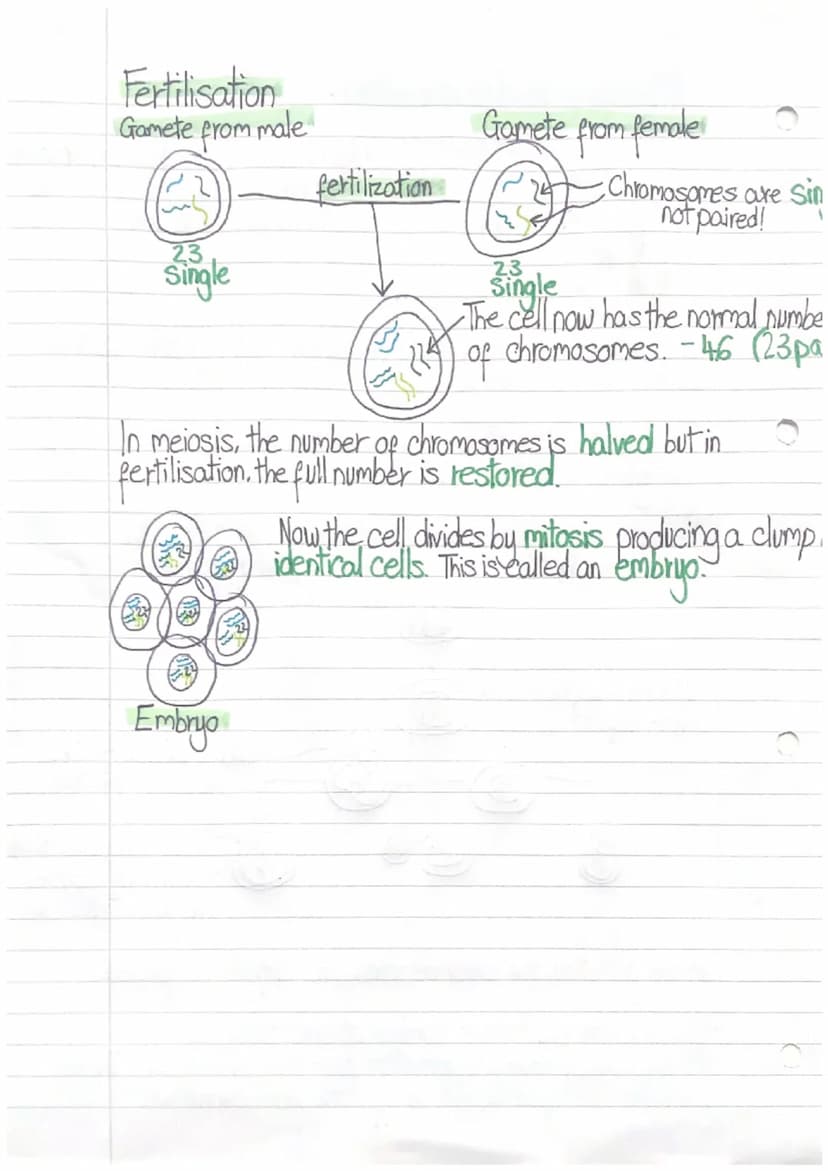 Fertilisation
Gamete from male
Gamete from female
fertilization
Chromosomes are Sin
not paired!
23
Single
23
Single
The cell now has the normal numbe
of chromosomes. - 46 (23pa
In meiosis, the number of chromosomes is halved but in
fertilisation, the full number is restored.
Now the cell divides by mitosis producing a clump
identical cells. This is called an embryo.
Embryo